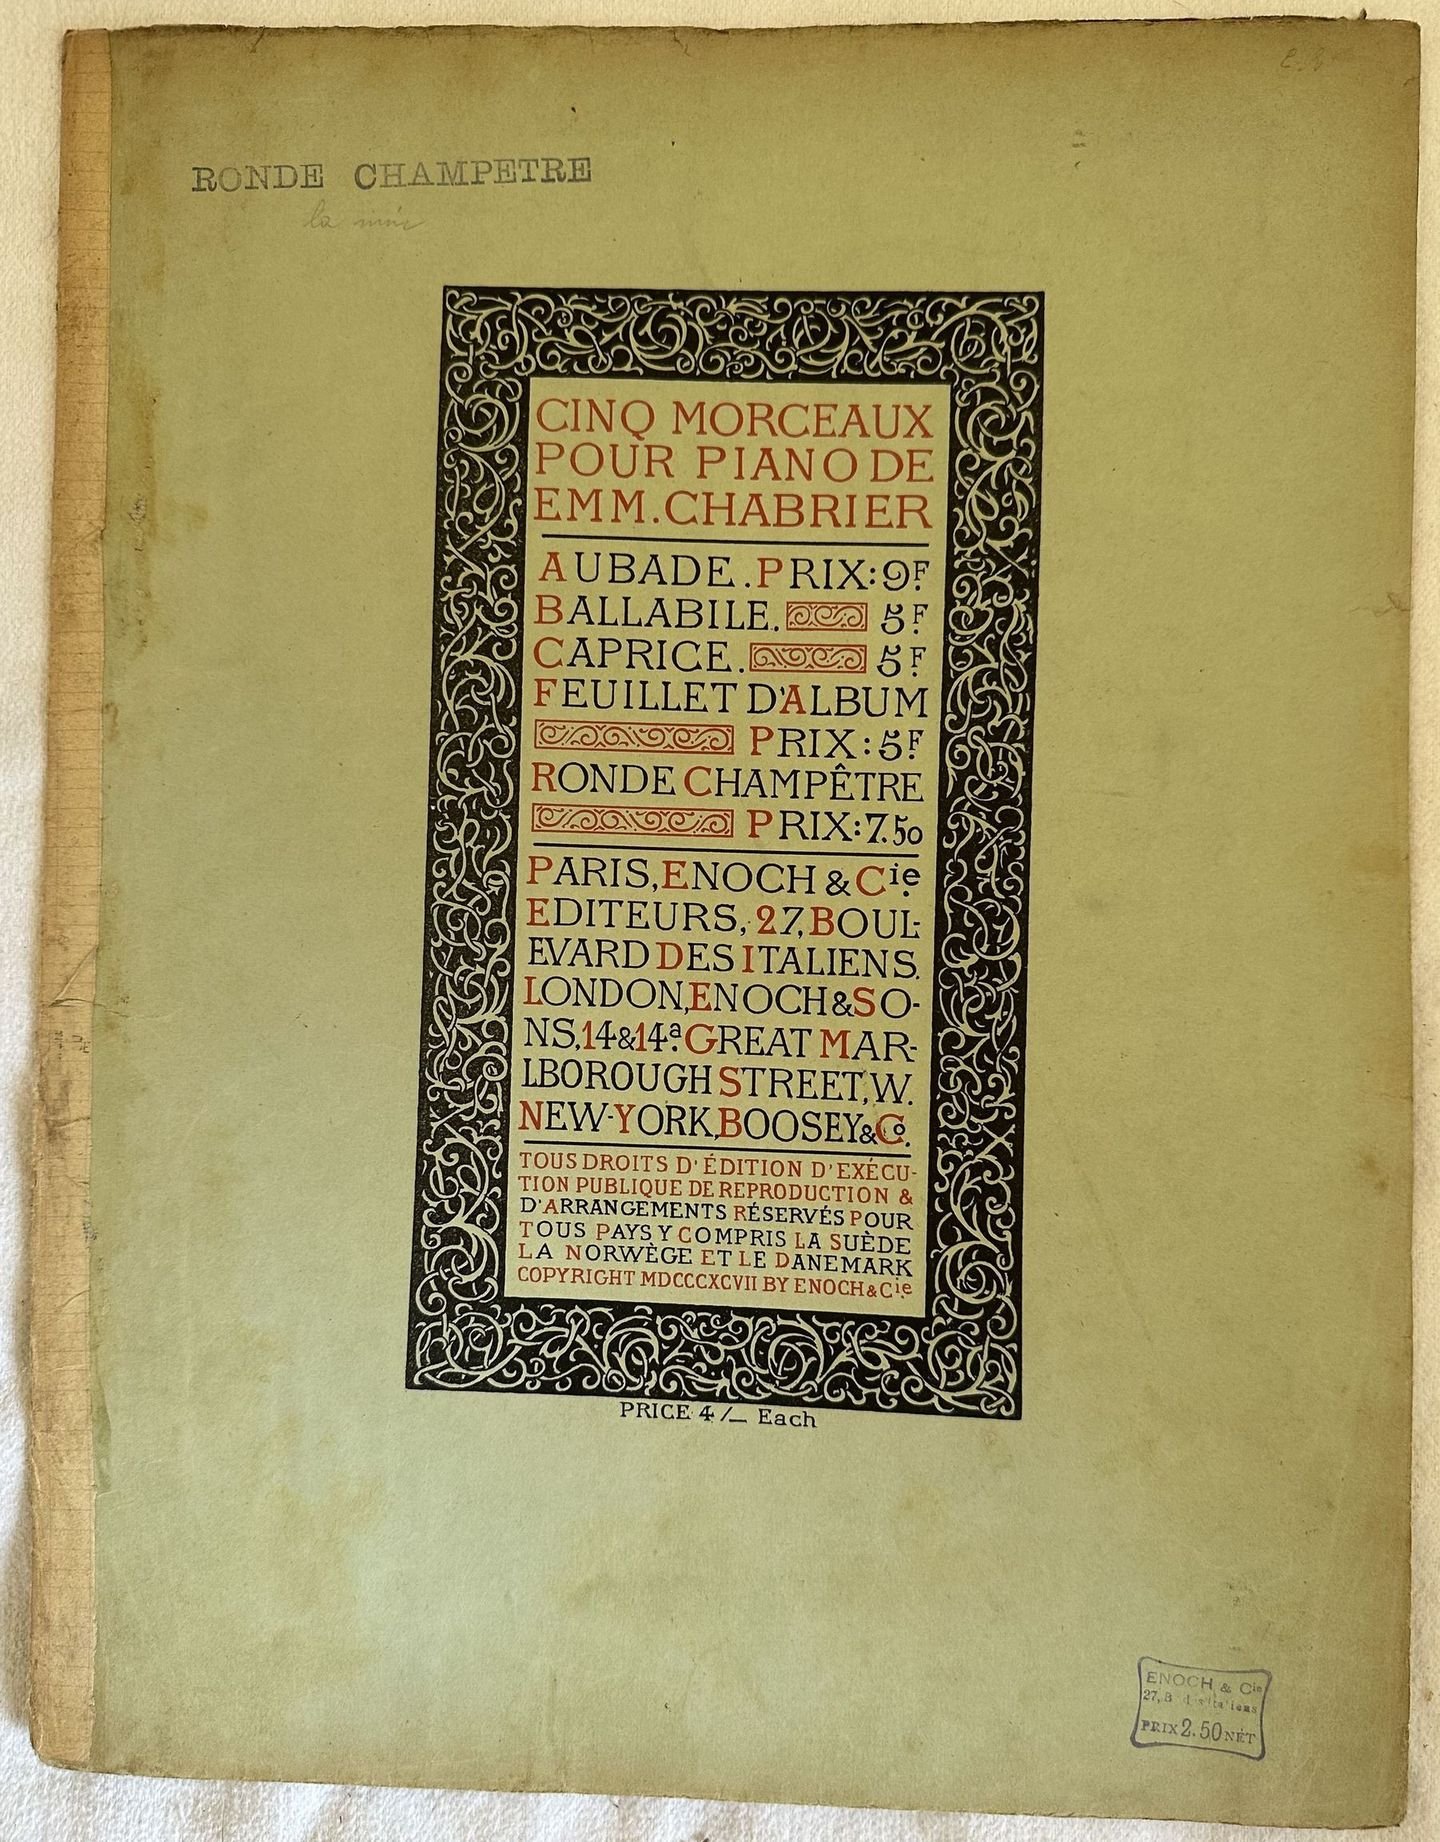 RONDE CHAMPETRE
la
CINQ MORCEAUX
POUR PIANO DE
EMM. CHABRIER
AUBADE. PRIX: 9F.
BALLABILE. 5F.
CAPRICE. 5F.
FEUILLET D'ALBUM
PRIX: 5F.
RONDE CHAMPÊTRE
PRIX: 7.50
PARIS, ENOCH & Cie.
EDITEURS, 27, BOUL-
EVARD DES ITALIENS.
LONDON, ENOCH & SO-
NS, 14 & 14a. GREAT MAR-
LBOROUGH STREET, W.
NEW-YORK, BOOSEY & Co.
TOUS DROITS D'ÉDITION D'EXÉCU-
TION PUBLIQUE DE REPRODUCTION &
D'ARRANGEMENTS RÉSERVÉS POUR
TOUS PAYS Y COMPRIS LA SUÈDE
LA NORWÈGE ET LE DANEMARK
COPYRIGHT MDCCCXCVII BY ENOCH & Cie.
PRICE 4/- Each
ENOCH & Cie
27, B
PRIX 2.50 NET